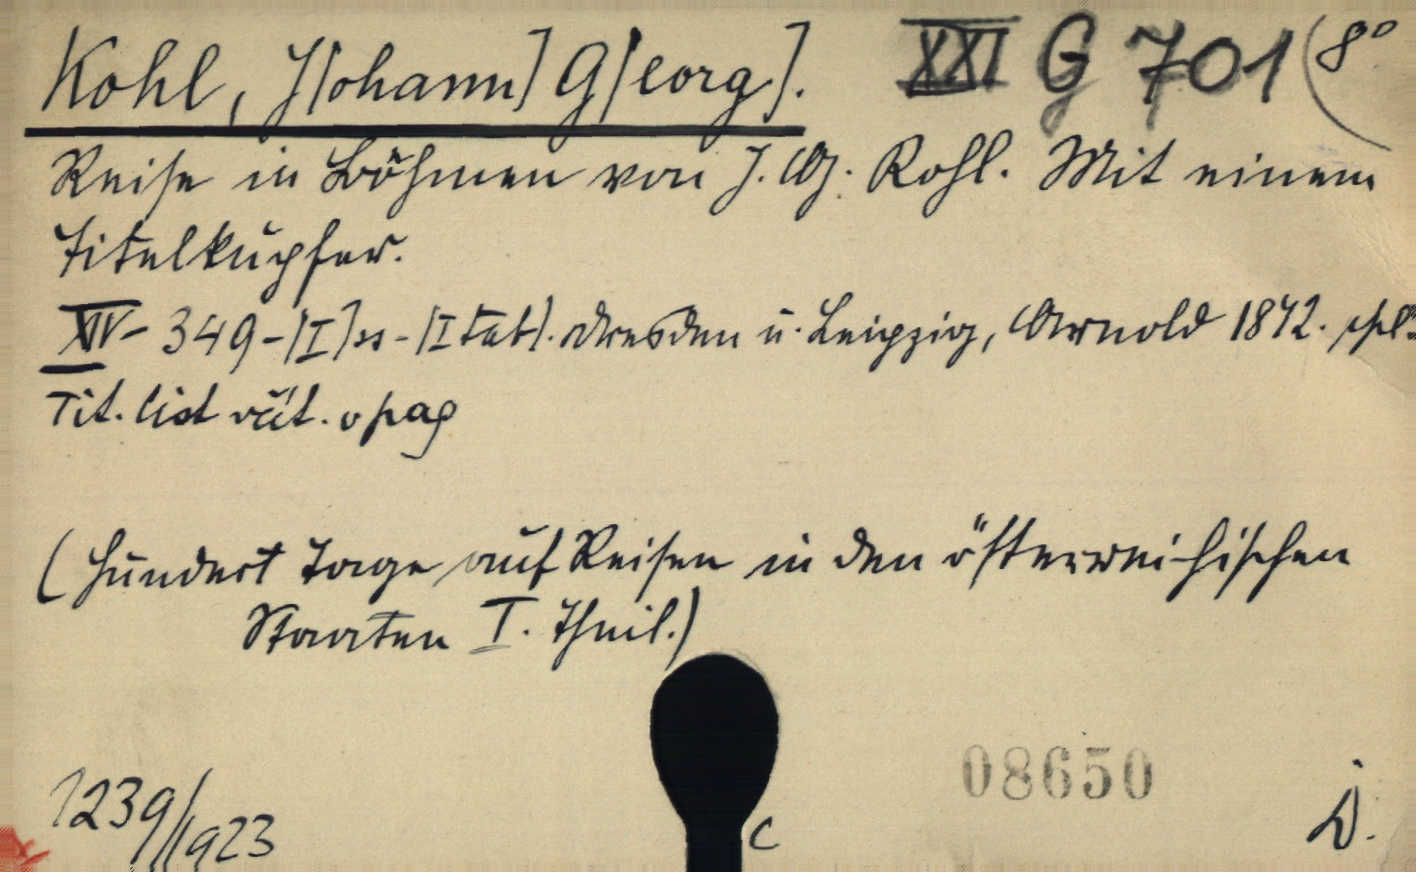 Kohl, J[ohann] G[eorg]. XXI G 701 (8°
Reise in Böhmen von J. G. Kohl. Mit einem
Titelkupfer.
XIV - 349 - [I] ss - [I tab]. Dresden u. Leipzig, Arnold 1842.
Tit. list
(Hundert Tage auf Reisen in den österreichischen
Staaten I. Theil.)
08650
1239/1923
C
D.